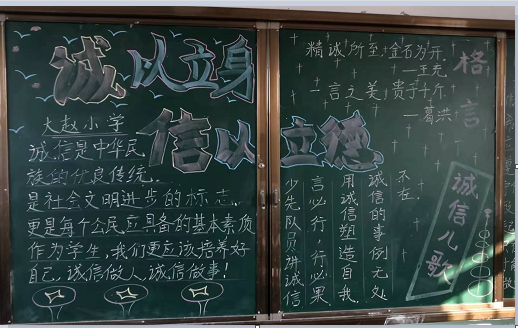 诚以立身
信以立德
大赵小学
诚信是中华民
族的优良传统.
是社会文明进步的标志.
更是每个公民立具备的基本素质
作为学生,我们更应该培养好
自己.诚信做人.诚信做事!
格言
精诚所至.金石为开.
—王充
一言之美.贵于千斤
—葛洪
诚信儿歌
不在.
诚信的事例无处
用诚信塑造自我.
言必行,行必果.
少先队员讲诚信